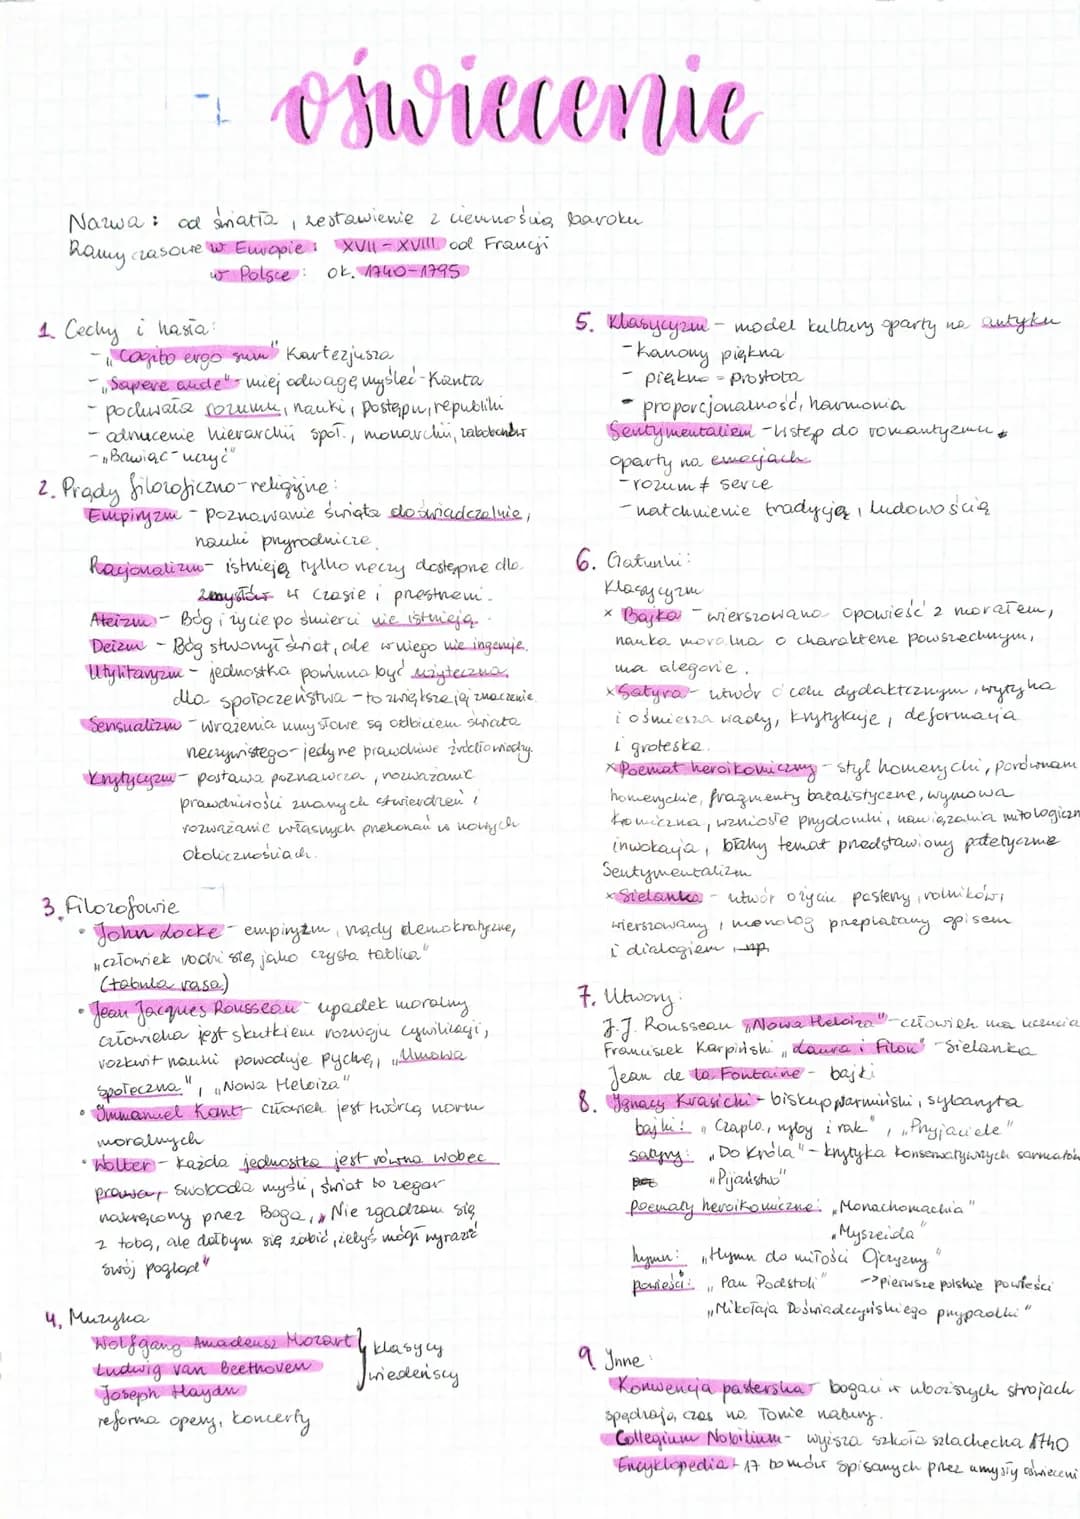 oświecenie
Nazwa: od światła, zestawienie z ciemnością baroku
Ramy czasowe w Europie: XVII-XVIII od Francji
w Polsce: ok. 1740-1795
1. Cechy i hasła:
- "Cogito ergo sum" Kartezjusza
- "Sapere aude" - miej odwagę myśleć - Kanta
- pochwała rozumu, nauki, postępu, republiki
- odrzucenie hierarchii społ., monarchii, zabobonów
- "Bawiąc-uczyć"
2. Prądy filozoficzno-religijne:
Empiryzm - poznawanie świata doświadczalnie,
nauki przyrodnicze.
Racjonalizm - istnieją tylko rzeczy dostępne dla
zmysłów w czasie i przestrzeni.
Ateizm - Bóg i życie po śmierci nie istnieją.
Deizm - Bóg stworzył świat, ale w niego nie ingeruje.
Utylitaryzm - jednostka powinna być użyteczna,
dla społeczeństwa - to zwiększa jej znaczenie.
Sensualizm - wrażenia umysłowe są odbiciem świata
rzeczywistego - jedyne prawdziwe źródło wiedzy.
Krytycyzm - postawa poznawcza, rozważanie
prawdziwości znanych stwierdzeń i
rozważanie własnych przekonań w nowych
okolicznościach.
3. Filozofowie
• John Locke - empiryzm, rządy demokratyczne,
"człowiek rodzi się jako czysta tablica"
(tabula rasa)
• Jean Jacques Rousseau - upadek moralny
człowieka jest skutkiem rozwoju cywilizacji,
rozkwit nauki powoduje pychę, "Umowa
społeczna", "Nowa Heloiza"
• Immanuel Kant - człowiek jest twórcą norm
moralnych
• Wolter - każda jednostka jest równa wobec
prawa, swoboda myśli, świat to zegar
nakręcony przez Boga, "Nie zgadzam się
z tobą, ale dałbym się zabić, żebyś mógł wyrazić
swój pogląd"
4. Muzyka
Wolfgang Amadeusz Mozart
Ludwig van Beethoven
Joseph Haydn
klasycy
wiedeńscy
reforma opery, koncerty
5. Klasycyzm - model kultury oparty na antyku
- kanony piękna
- piękno = prostota
- proporcjonalność, harmonia
Sentymentalizm - wstęp do romantyzmu,
oparty na emocjach
- rozum ≠ serce
- natchnienie tradycją, ludowością
6. Gatunki:
Klasycyzm
x Bajka - wierszowana opowieść z morałem,
nauka moralna o charakterze powszechnym,
ma alegorie.
x Satyra - utwór o celu dydaktcznym, wytyka
i ośmiesza wady, krytykuje, deformacja
i groteska.
x Poemat heroikomiczny - styl homerycki, porównan
homeryckie, fragmenty batalistyczne, wymowa
komiczna, wzniosłe przydomki, nawiązania mitologiczn
inwokacja, błahy temat przedstawiony patetycznie
Sentymentalizm
x Sielanka - utwór o życiu pasterzy, rolników,
wierszowany, monolog przeplatany opisem
i dialogiem, np.
7. Utwory:
J.J. Rousseau "Nowa Heloiza" - człowiek ma uczucia
Franciszek Karpiński "Laura i Filon" - Sielanka
Jean de la Fontaine - bajki
8. Ignacy Krasicki - biskup warmiński, sybaryta
bajki: "Czapla, ryby i rak", "Przyjaciele"
satyry: "Do Króla" - krytyka konserwatywnych sarmatów
"Pijaństwo"
poematy heroikomiczne: "Monachomachia"
"Myszeida"
hymn: "Hymn do miłości Ojczyzny"
powieści: "Pan Podstoli" -> pierwsze polskie powieści
"Mikołaja Doświadczyńskiego przypadki"
9 Inne:
Konwencja pasterska - bogaci w uboższych strojach
spędzają czas na łonie natury.
Collegium Nobilium - wyższa szkoła szlachecka 1740
Encyklopedia - 17 tomów spisanych przez umysły oświeceni